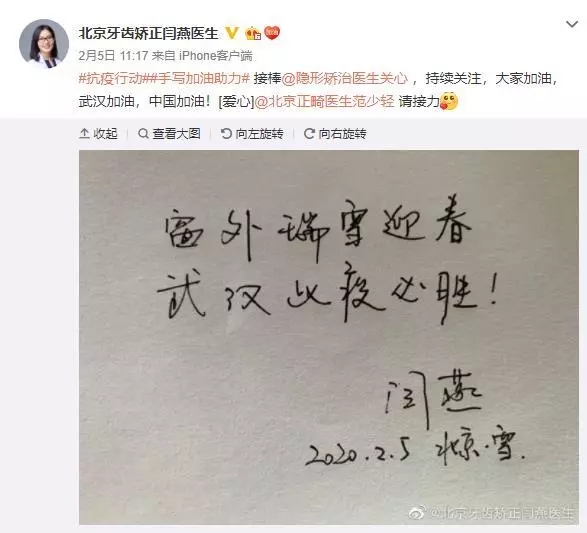 北京牙齿矫正闫燕医生
2月5日 11:17 来自 iPhone客户端
#抗疫行动##手写加油助力# 接棒@隐形矫治医生关心 ,持续关注,大家加油,
武汉加油,中国加油![爱心]@北京正畸医生范少轻 请接力
收起 查看大图 向左旋转 向右旋转
窗外瑞雪迎春
武汉此疫必胜!
闫燕
2020.2.5 北京·雪.
@北京牙齿矫正闫燕医生